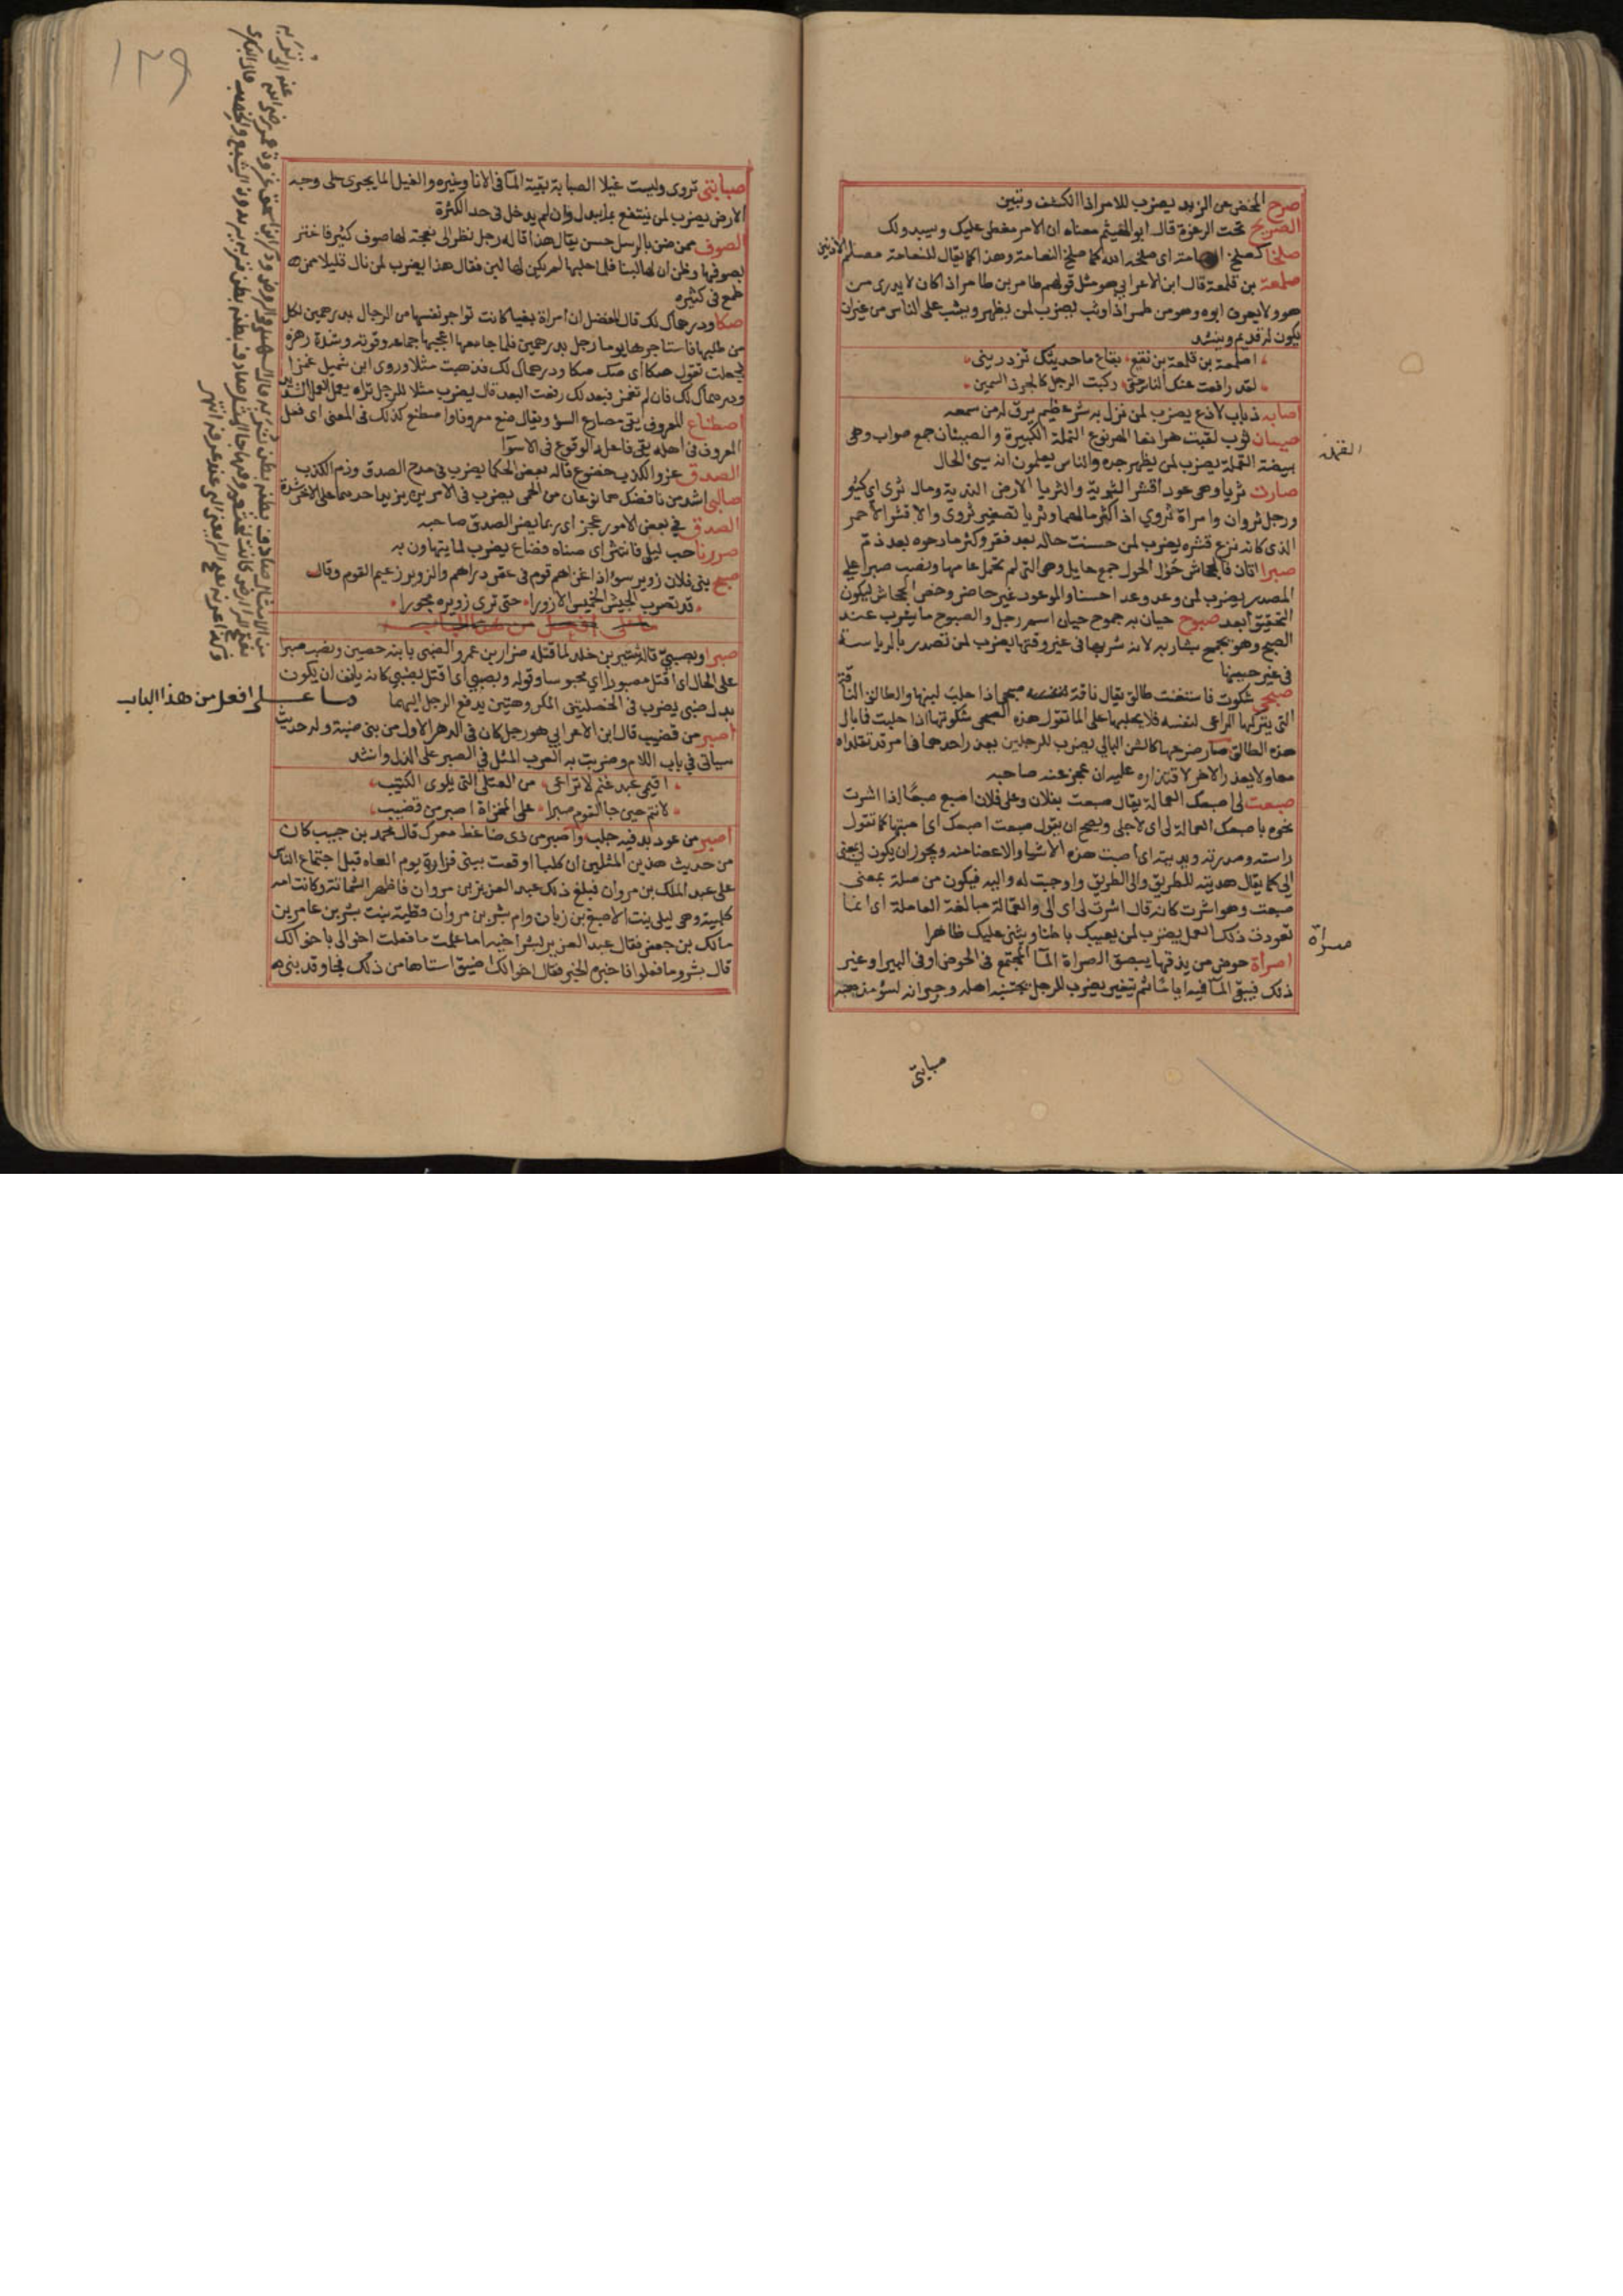 صرح المخض عن الزبد يضرب للامر اذا انكشف وتبين
الصريح تحت الرغوة قال ابو الهيثم معناه ان الامر مغطى عليك وسيبدو لك
صلخا كصلخ النعامة اى صلخه الله كما صلخ النعامة وهذا كما يقال للنعامة مصلم الاذنين
صلمعة بن قلمعة قال ابن الاعرابي هو مثل قولهم طامر بن طامر اذا كان لا يدرى من
هو ولا يعرف ابوه وهو من طمر اذا وثب يضرب لمن يظهر ويثب على الناس من غير ان
يكون له قديم وينشد
اصلمعة بن قلمعة بن نقع بقاع ما حديثك تزدريني
لقد رافعت عنك الناس حتى ركبت الرجل كالجرذ السمين
اصابه ذباب لاذع يضرب لمن نزل به شر عظيم يرق له من سمعه
صيبان ثوب لقبت هرانعا الهرنوع القملة الكبيرة والصيبان جمع صواب وهى
بيضة القملة يضرب لمن يظهر جده والناس يعلمون انه سيئ الحال
صارت ثريا وهى عود اقشر الثرية والثريا الارض الندية ومال ثرى اى كثير
ورجل ثروان وامراة ثروي اذا كثر مالهما وثريا تصغير ثروى والاقشر الاحمر
الذى كانه نزع قشره يضرب لمن حسنت حاله بعد فقر وكثر مادحوه بعد ذم
صبرا اتان فالجحاش حول الحول جمع حايل وهى التى لم تحمل عامها ونصب صبرا على
المصدر يضرب لمن وعد وعدا حسنا والموعود غير حاضر وخص الجحاش ليكون
التحقيق ابعد صبوح حيان به جموح حيان اسم رجل والصبوح ما يشرب عند
الصبح وهو يجمح بشاربه لانه شربها فى غير وقتها يضرب لمن تصدر بالرياسة
فى غير حينها
صبحى شكوت فاستشنت طالق يقال ناقة صبحى اذا حلب لبنها والطالق الناقة
التى يتركها الراعى لنفسه فلا يحلبها على الما تقول هذه الصبحى شكوتها اذا حلبت فما بال
هذه الطالق صار ضرعها كالشن البالي يضرب للرجلين يعذر احدهما فى امر قد تقلداه
معا ولا يعذر الاخر لاقتداره عليه ان عجز عنه صاحبه
صبعت لى اصبعك العمالة يقال صبعت بفلان وعلى فلان اصبع صبعا اذا اشرت
نحوه باصبعك العمالة لى اى لاجلى ويصح ان يقول صبعت اصبعك اى اصبتها كما تقول
راسته وصدرته ويديته اى اصبت هذه الاشيا والاعضا منه ويجوز ان يكون لى بمعنى
الى كما يقال هديته للطريق والى الطريق واوحيت له واليه فيكون من صلة بمعنى
صبعت وهو اشرت كانه قال اشرت لى اى الى والعمالة مبالغة العاملة اى انها
تعودت ذلك العمل يضرب لمن يعيبك باطنا ويثنى عليك ظاهرا
اصراة حوض من يذقها يبصق الصراة الما المجتمع فى الحوض او فى البير او غير
ذلك فيبقى الما فيه اياما ثم يتغير يضرب للرجل يجتنبه اهله وجيرانه لسو مذهبه
القملة
صراة
صبابتى
صبابتى تروى وليست غيلا الصبابة بقية الما فى الانا وغيره والغيل الما يجرى على وجه
الارض يضرب لمن ينتفع بما يبذل وان لم يدخل فى حد الكثرة
الصوف ممن ضن بالرسل حسن يقال هذا قاله رجل نظر الى نعجة لها صوف كثير فاغتر
بصوفها وظن ان لها لبنا فلما حلبها لم يكن لها لبن فقال هذا يضرب لمن نال قليلا ممن
طمع فى كثيره
صكا ودرهماك لك قال المفضل ان امراة بغيا كانت تواجر نفسها من الرجال بدرهمين لكل
من طلبها فاستاجرها يوما رجل بدرهمين فلما جامعها اعجبها جماعه وقوته وشدة رهزه
فجعلت تقول صكا اى صك صكا ودرهماك لك فذهبت مثلا وروى ابن شميل غمزا
ودرهماك لك فان لم تغمز فبعد لك رفعت البعد قال يضرب مثلا للرجل تراه يعمل العمل الشديد
اصطناع المعروف يقى مصارع السو ويقال صنع معروفا واصطنع كذلك فى المعنى اى فعل
المعروف فى اهله يقى فاعله الوقوع فى الاسوا
الصدق عز والكذب خضوع قاله بعض الحكما يضرب فى مدح الصدق وذم الكذب
صالبى اشد من نافضك هما نوعان من الحمى يضرب فى الامرين يزيد احدهما على الاخر شدة
الصدق في بعض الامور عجز اى ربما يضر الصدق صاحبه
صررنا حب ليلى فانتثر اى صناه فضاع يضرب لما يتهاون به
صبح بنى فلان زوير سو اذا غزاهم قوم فى عقر دارهم والزوير زعيم القوم وقال
قد نضرب الجيش الخميس الازورا حتى ترى زويره مجورا
ما على افعل من هذا الباب
صبرا وبضبي قاله شتير بن خالد لما قتله ضرار بن عمرو الضبى بابنه حصين ونصب صبرا
على الحال اى اقتل مصبورا اي محبوسا وقوله وبضبي اى اقتل بضبي كانه يانف ان يكون
بدل ضبى يضرب فى الخصلتين المكروهتين يدفع الرجل اليهما
ما على افعل من هذا الباب
اصبر من قضيب قال ابن الاعرابي هو رجل كان فى الدهر الاول من بنى ضبة وله حديث
سياتى في باب اللام وضربت به العرب المثل في الصبر على الذل وانشد
اقيمى عبد غنم لا تراعى من القتلى التى بلوى الكثيب
لانتم حين جا القوم صبرا على المخزاة اصبر من قضيب
اصبر من عود بدفيه جلب واصبر من ذى ضاغط معرك قال محمد بن حبيب كان
من حديث هذين المثلين ان كلبا اوقعت ببنى فزارة يوم العاه قبل اجتماع الناس
على عبد الملك بن مروان فبلغ ذلك عبد العزيز بن مروان فاظهر الشماتة وكانت امه
كلبية وهى ليلى بنت الاصبغ بن زبان وام بشر بن مروان قطية بنت بشر بن عامر بن
مالك بن جعفر فقال عبد العزيز لبشر اخيه اما علمت ما فعلت اخوالى باخوالك
قال بشر وما فعلوا فاخبره الخبر فقال اخوالك اضيق استاها من ذلك فجا وفد بنى
١٢٩